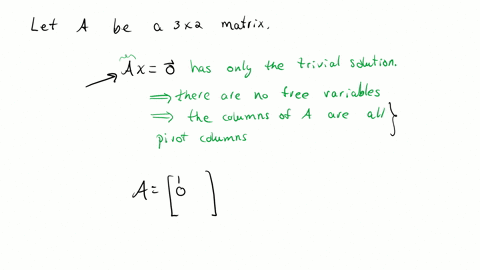 Let A be a 3x2 matrix.
Ax = 0⃗ has only the trivial solution.
⟹ there are no free variables
⟹ the columns of A are all
pivot columns
A = [ 1
0 ]